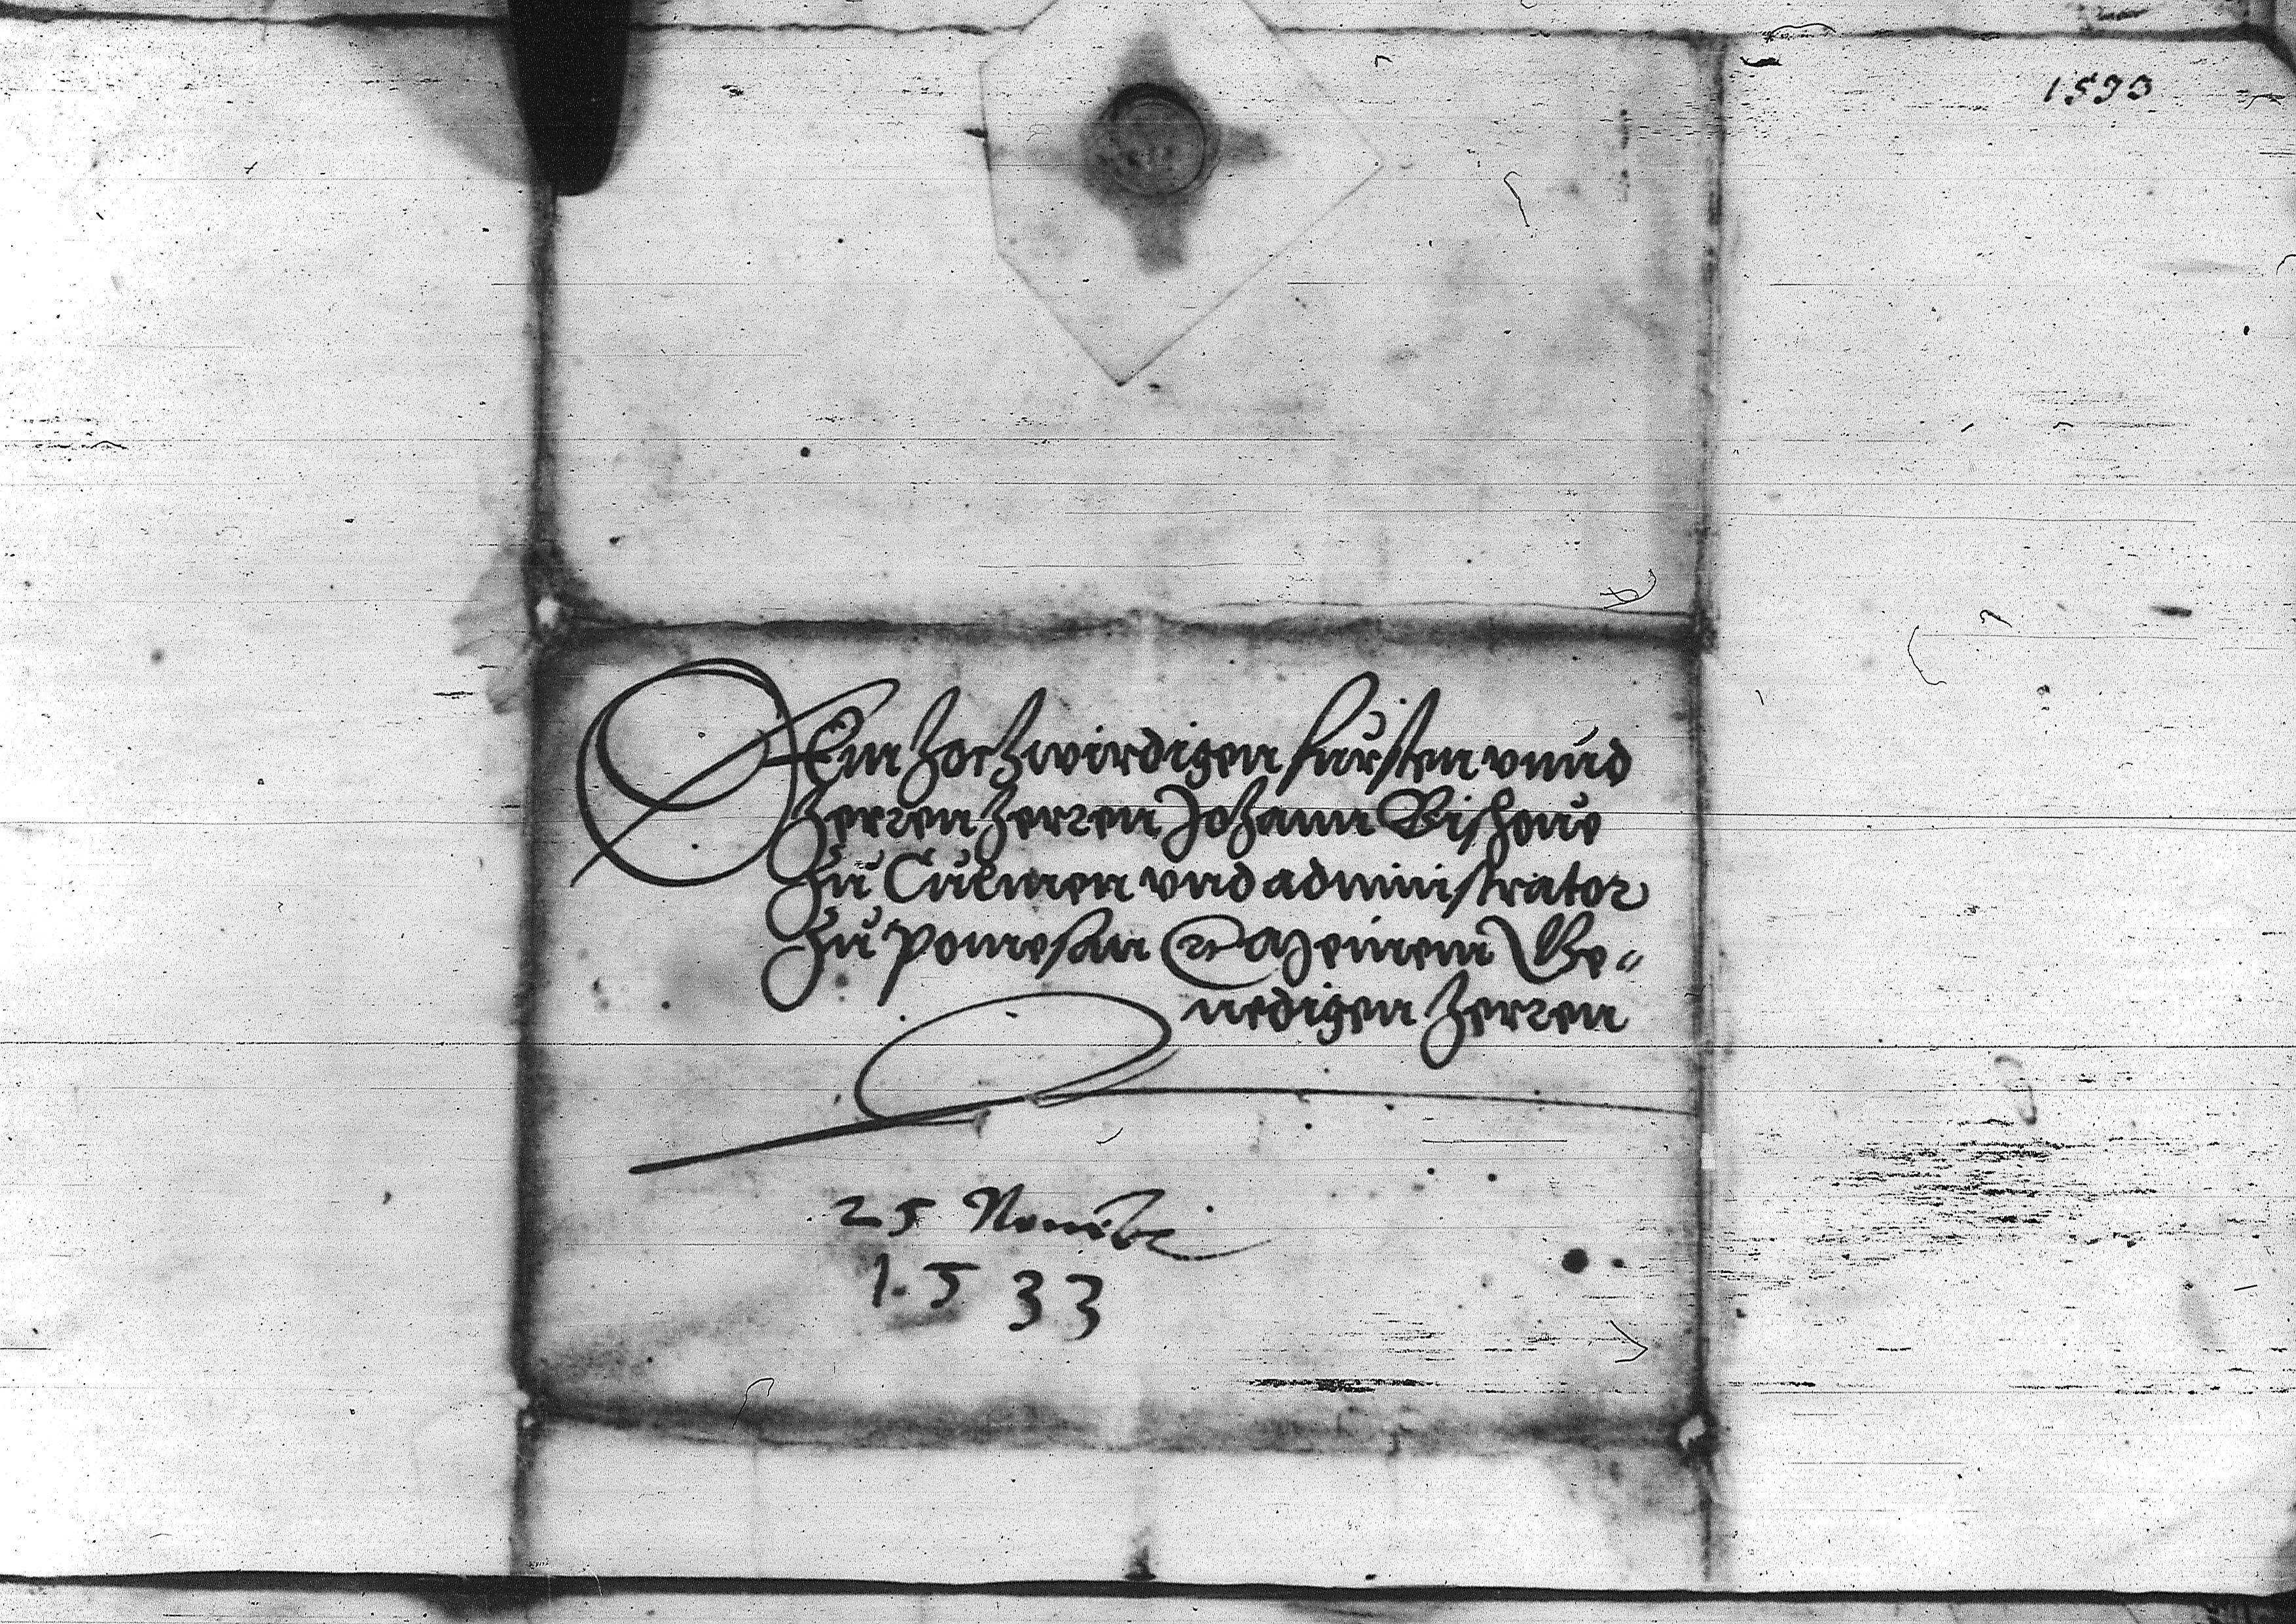 1533
DEm hochwirdigen fursten vnnd
herren herren Johann Bishoue
Zu Culmen vnd administrator
Zu pomesan &c Meinem Ge„
nedigen herren
25 Nouēbr
1.5 33